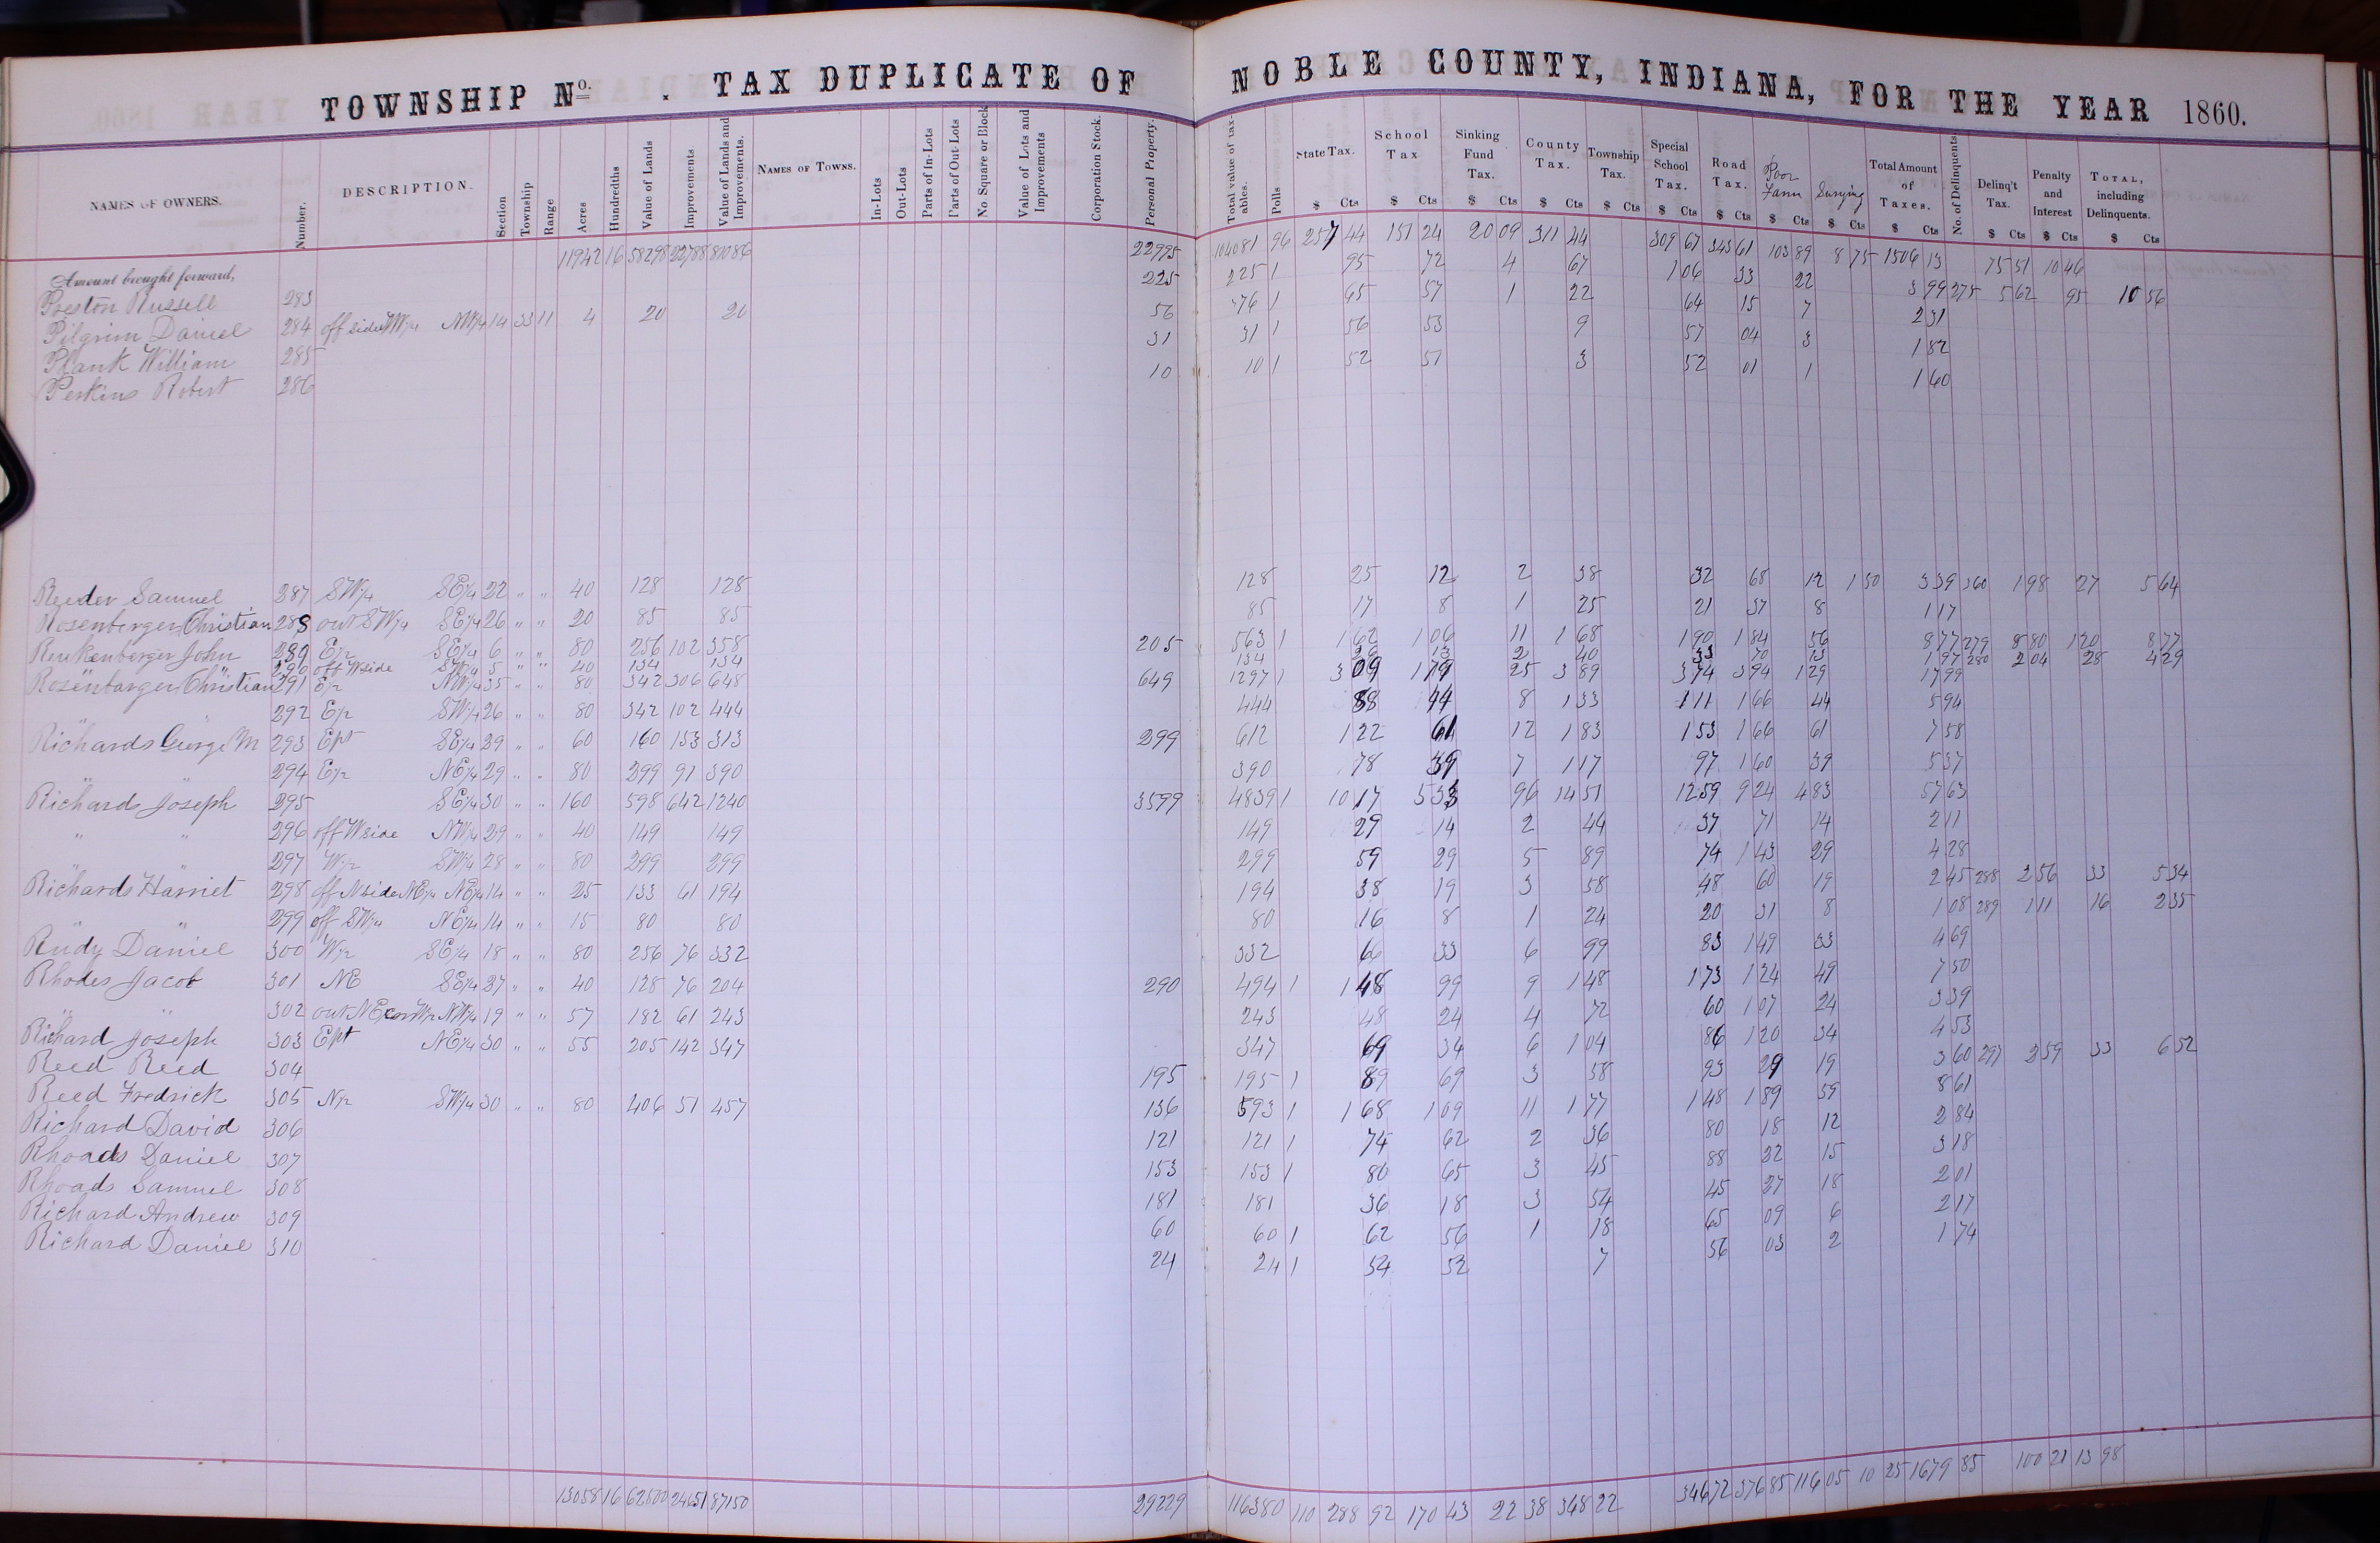 TOWNSHIP No. . TAX DUPLICATE OF NOBLE COUNTY, INDIANA, FOR THE YEAR 1860.
NAMES OF OWNERS. Number. DESCRIPTION. Section Township Range Acres Hundredths Value of Lands Improvements Value of Lands and Improvements. NAMES OF TOWNS. In-Lots Out-Lots Parts of In-Lots Parts of Out-Lots No. Square or Block Value of Lots and Improvements Corporation Stock. Personal Property. Total value of taxables. Polls State Tax. School Tax Sinking Fund Tax. County Tax. Township Tax. Special School Tax. Road Tax. Poor Farm Total Amount of Taxes. No. of Delinquents Delinq't Tax. Penalty and Interest TOTAL, including Delinquents.
$ Cts $ Cts $ Cts $ Cts $ Cts $ Cts $ Cts $ Cts $ Cts $ Cts $ Cts $ Cts $ Cts
Amount brought forward, 11942 16 58298 22788 81086 22995 104081 96 257 44 151 24 20 09 311 44 309 67 343 61 103 89 8 75 1506 13 75 51 10 46
Preston Russell 283 225 225 1 95 72 4 67 1 06 33 22 3 99 275 5 62 95 10 56
Pilgrim Daniel 284 off side NW1/4 NW1/4 14 33 11 4 20 20 56 76 1 65 57 1 22 64 15 7 2 31
Plank William 285 31 31 1 56 53 9 57 04 3 1 82
Perkins Robert 286 10 10 1 52 51 3 52 01 1 1 60
Reeder Samuel 287 SW1/4 SE1/4 22 " " 40 128 128 128 25 12 2 38 32 68 12 1 50 3 39 360 1 98 27 5 64
Rosenberger Christian 288 out SW1/4 SE1/4 26 " " 20 85 85 85 17 8 1 25 21 37 8 1 17
Renkenberger John 289 E1/2 SE1/4 6 " " 80 256 102 358 205 563 1 1 62 1 06 11 1 68 1 90 1 84 56 8 77 279 8 80 1 20 8 77
" " 290 off W side SW1/4 5 " " 40 134 134 134 26 13 2 40 33 70 13 1 97 280 2 04 28 4 29
Rosenbarger Christian 291 E1/2 NW1/4 35 " " 80 342 306 648 649 1297 1 3 09 1 79 25 3 89 3 74 3 94 1 29 17 99
292 E1/2 SW1/4 26 " " 80 342 102 444 444 88 44 8 1 33 1 11 1 66 44 5 94
Richards George M 293 Ept SE1/4 29 " " 60 160 153 313 299 612 1 22 61 12 1 83 1 53 1 66 61 7 58
" " 294 E1/2 NE1/4 29 " " 80 299 91 390 390 78 39 7 1 17 97 1 60 39 5 37
Richard Joseph 295 SE1/4 30 " " 160 598 642 1240 3599 4839 1 10 17 5 33 96 14 51 12 59 9 24 4 83 57 63
" " 296 off W side NW1/4 29 " " 40 149 149 149 29 14 2 44 37 71 14 2 11
" " 297 W1/2 SW1/4 28 " " 80 299 299 299 59 29 5 89 74 1 43 29 4 28
Richards Harriet 298 off N side NE1/4 NE1/4 14 " " 25 133 61 194 194 38 19 3 58 48 60 19 2 45 288 2 56 33 5 34
" " 299 off SW1/4 NE1/4 14 " " 15 80 80 80 16 8 1 24 20 31 8 1 08 289 1 11 16 2 35
Rudy Daniel 300 W1/2 SE1/4 18 " " 80 256 76 332 332 66 33 6 99 83 1 49 33 4 69
Rhodes Jacob 301 NE SE1/4 27 " " 40 128 76 204 290 494 1 1 48 99 9 1 48 1 73 1 24 49 7 50
" " 302 out NE cor W1/2 NW1/4 19 " " 57 182 61 243 243 48 24 4 72 60 1 07 24 3 39
Richard Joseph 303 Ept NE1/4 30 " " 55 205 142 347 347 69 34 6 1 04 86 1 20 34 4 53
Reed Reed 304 195 195 1 89 69 3 58 93 29 19 3 60 297 2 59 33 6 52
Reed Fredrick 305 N1/2 SW1/4 30 " " 80 406 51 457 136 593 1 1 68 1 09 11 1 77 1 48 1 89 59 8 61
Richard David 306 121 121 1 74 62 2 36 80 18 12 2 84
Rhoads Daniel 307 153 153 1 80 65 3 45 88 22 15 3 18
Rhoads Samuel 308 181 181 36 18 3 54 45 27 18 2 01
Richard Andrew 309 60 60 1 62 56 1 18 65 09 6 2 17
Richard Daniel 310 24 24 1 54 52 7 56 03 2 1 74
13058 16 62500 24651 87150 29229 116380 110 288 92 170 43 22 38 348 22 346 72 376 85 116 05 10 25 1679 85 100 21 13 98